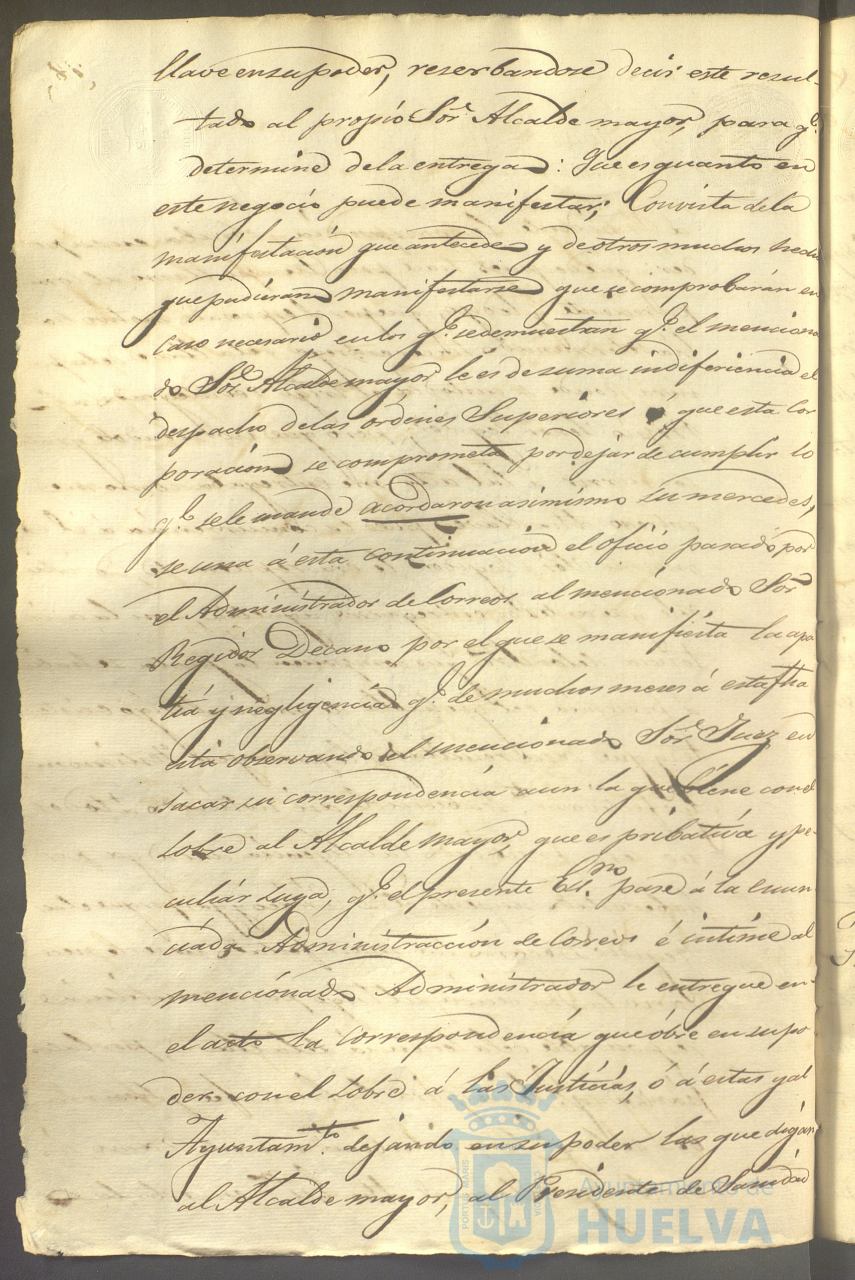 llave en su poder, reserbandose decir este resul-
tado al propio Sor. Alcalde mayor, para q.e
determine de la entrega: Que es quanto en
este negocio puede manifestar; Con vista de la
manifestación que antecede y de otros muchos hechos
que pudieran manifestarse que se comprobarán en
caso necesario en los q.e se demuestran q.e el menciona
do Sor. Alcalde mayor le es de suma indiferiencia el
despacho de las ordenes Superiores ó que esta Cor
poración se comprometa por dejar de cumplir lo
q.e se le mande acordaron asimismo su mercedes,
se una á esta continuación el oficio pasado por
el Administrador de Correos al mencionado Sor.
Regidor Decano por el que se manifiesta la apa
tia y negligencia q.e de muchos meses á esta fha
está observando el mencionado Sor. Juez en
sacar su correspondencia aun la que viene con el
sobre al Alcalde mayor, que es pribativa y pe-
culiár suya, q.e el presente Es.no pase á la enun
ciada Administracción de Correos é intime al
mencionado Administrador le entregue en
el acto la correspondencia que óbre en su po
der con el sobre á las Justicias, ó á estas y al
Ayuntam.to dejando en su poder las que digan
al Alcalde mayor, al Presidente de Sanidad
Ayuntamiento de
HUELVA